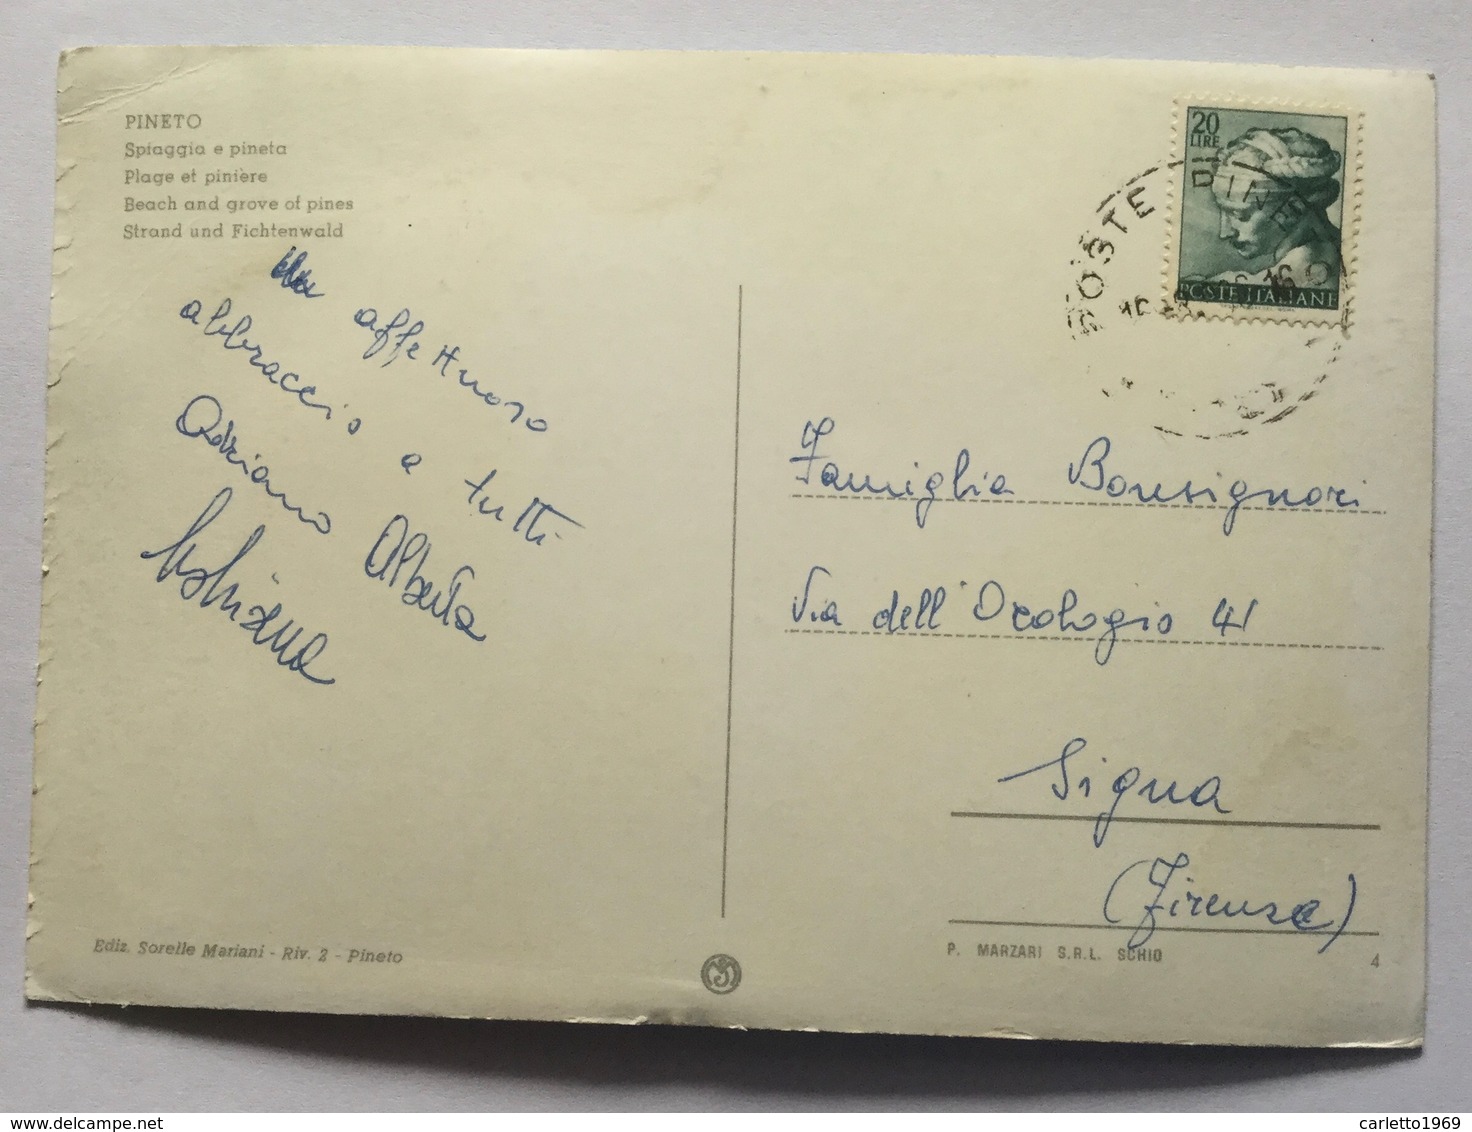 PINETO
Spiaggia e pineta
Plage et pinière
Beach and grove of pines
Strand und Fichtenwald
Un affettuoso
abbraccio a tutti
Adriano Alberta
20
LIRE
POSTE ITALIANE
POSTE DI PINETO
Famiglia Bonsignori
Via dell'Orologio 41
Signa
(Firenze)
Ediz. Sorelle Mariani - Riv. 2 - Pineto
P. MARZARI S.R.L. SCHIO
4
carletto1969